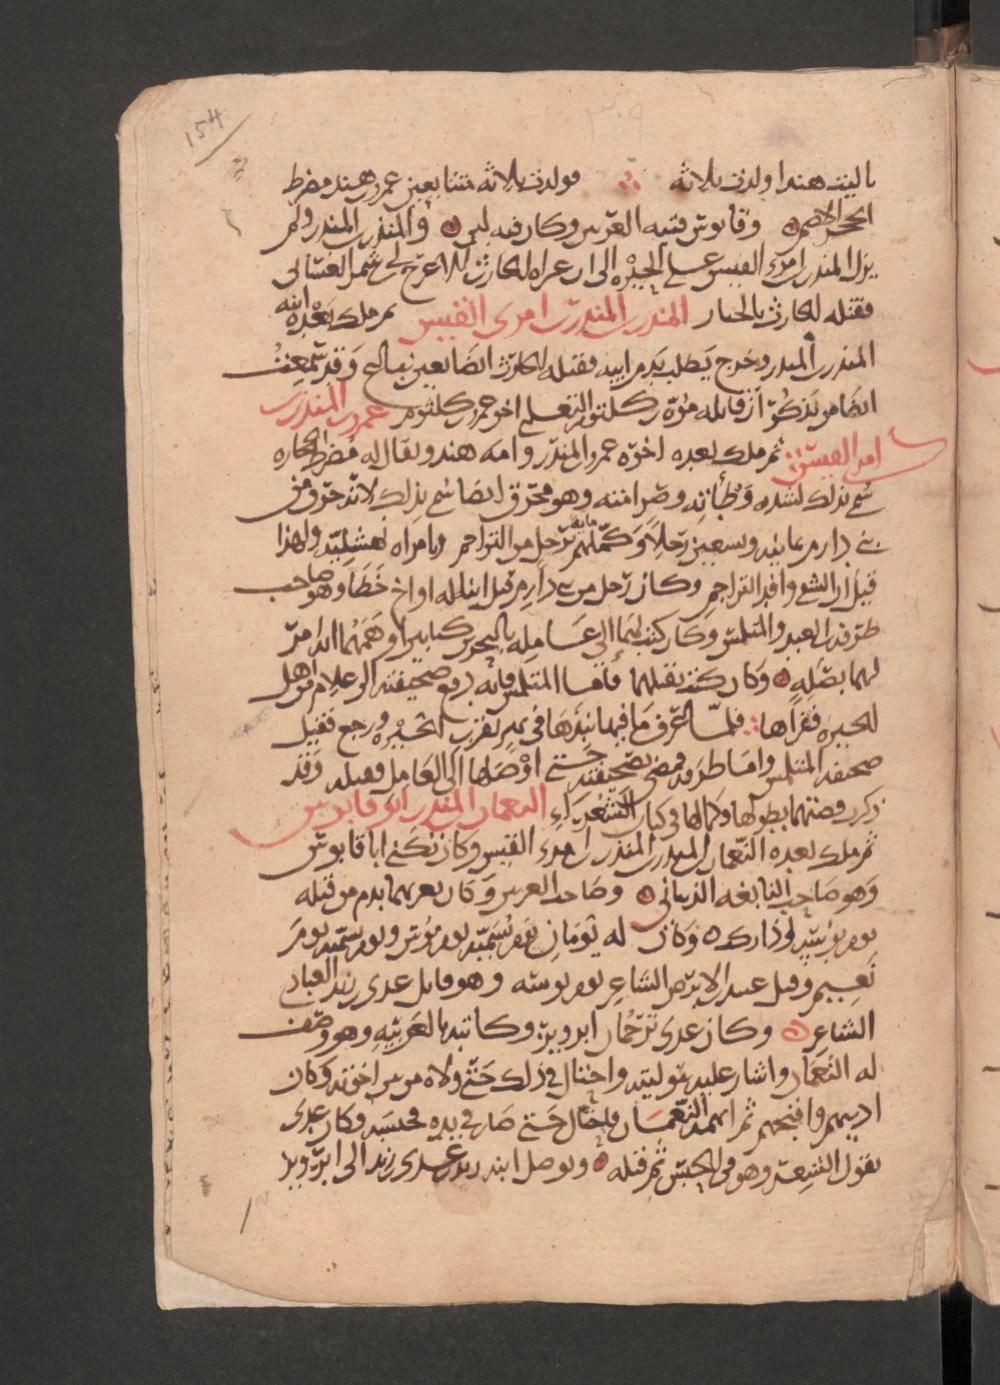 154
يا ليت هندا ولدت ثلاثه ∴ فولدت ثلاثه متتابعين عمرو بن هند مضرط
الحجر الاصم وقابوس قينه العرس وكان فيه لين والمنذر بن المنذر ولم
يزل المنذر بن امرى القيس على الحيره الى ان غزاه الحارث الاعرج بن ابى شمر الغسانى
فقتله الحارث بالحيار المنذر بن المنذر بن امرى القيس ثم ملك بعده ابنه
المنذر بن المنذر وخرج يطلب بدم ابيه فقتله الحارث ايضا بعين اباغ وقد سمعت
ايضا من يذكر ان قاتله مره بن كلثوم التغلبى اخو عمرو بن كلثوم عمرو بن المنذر بن
امرى القيس ثم ملك بعده اخوه عمرو بن المنذر وامه هند ويقال له مضرط الحجاره
سمى بذلك لشده وطأته وصرامته وهو محرق ايضا سمى بذلك لانه حرق من
بنى دارم ثمانيه وتسعين رجلا وكملهم مايه برجل من البراجم وبامراه نهشليه ولهذا
قيل ان الشقى وافد البراجم وكان رجل من بنى دارم قتل ابنا له او اخا خطأ وهو صاحب
طرفه بن العبد والمتلمس وكان كتب لهما الى عامله بالبحرين كتابين اوهمهما انه امر
لهما بصله وكان كتب بقتلهما فاما المتلمس فانه دفع صحيفته الى غلام من اهل
الحيره فقراها فلما عرف ما فيها نبذها فى نهر بقرب الحيره ورجع فقيل
صحيفه المتلمس واما طرفه فمضى بصحيفته حتى اوصلها الى العامل فقتله وقد
ذكرت قصتهما بطولها وكمالها فى كتاب الشعراء النعمان بن المنذر ابو قابوس
ثم ملك بعده النعمان بن المنذر بن المنذر بن امرى القيس وكان يكنى ابا قابوس
وهو صاحب النابغه الذبيانى وصاحب الغريين وكان يغريهما بدم من قتله
يوم بؤسه وكان له يومان يوم يسميه يوم بؤس ويوم يسميه يوم
نعيم وقتل عبيد بن الابرص الشاعر يوم بوسه وهو قاتل عدى بن زيد العبادى
الشاعر وكان عدى ترجمان ابرويز وكاتبه بالعربيه وهو وصف
له النعمان واشار عليه بتوليته واحتال فى ذلك حتى ولاه من بين اخوته وكان
ادمهم واقبحهم ثم اتهمه النعمان فاحتال حتى صار فى يده فحبسه فكان عدى
يقول الشعر وهو فى الحبس ثم قتله وتوصل ابنه زيد بن عدى بن زيد الى ابرويز